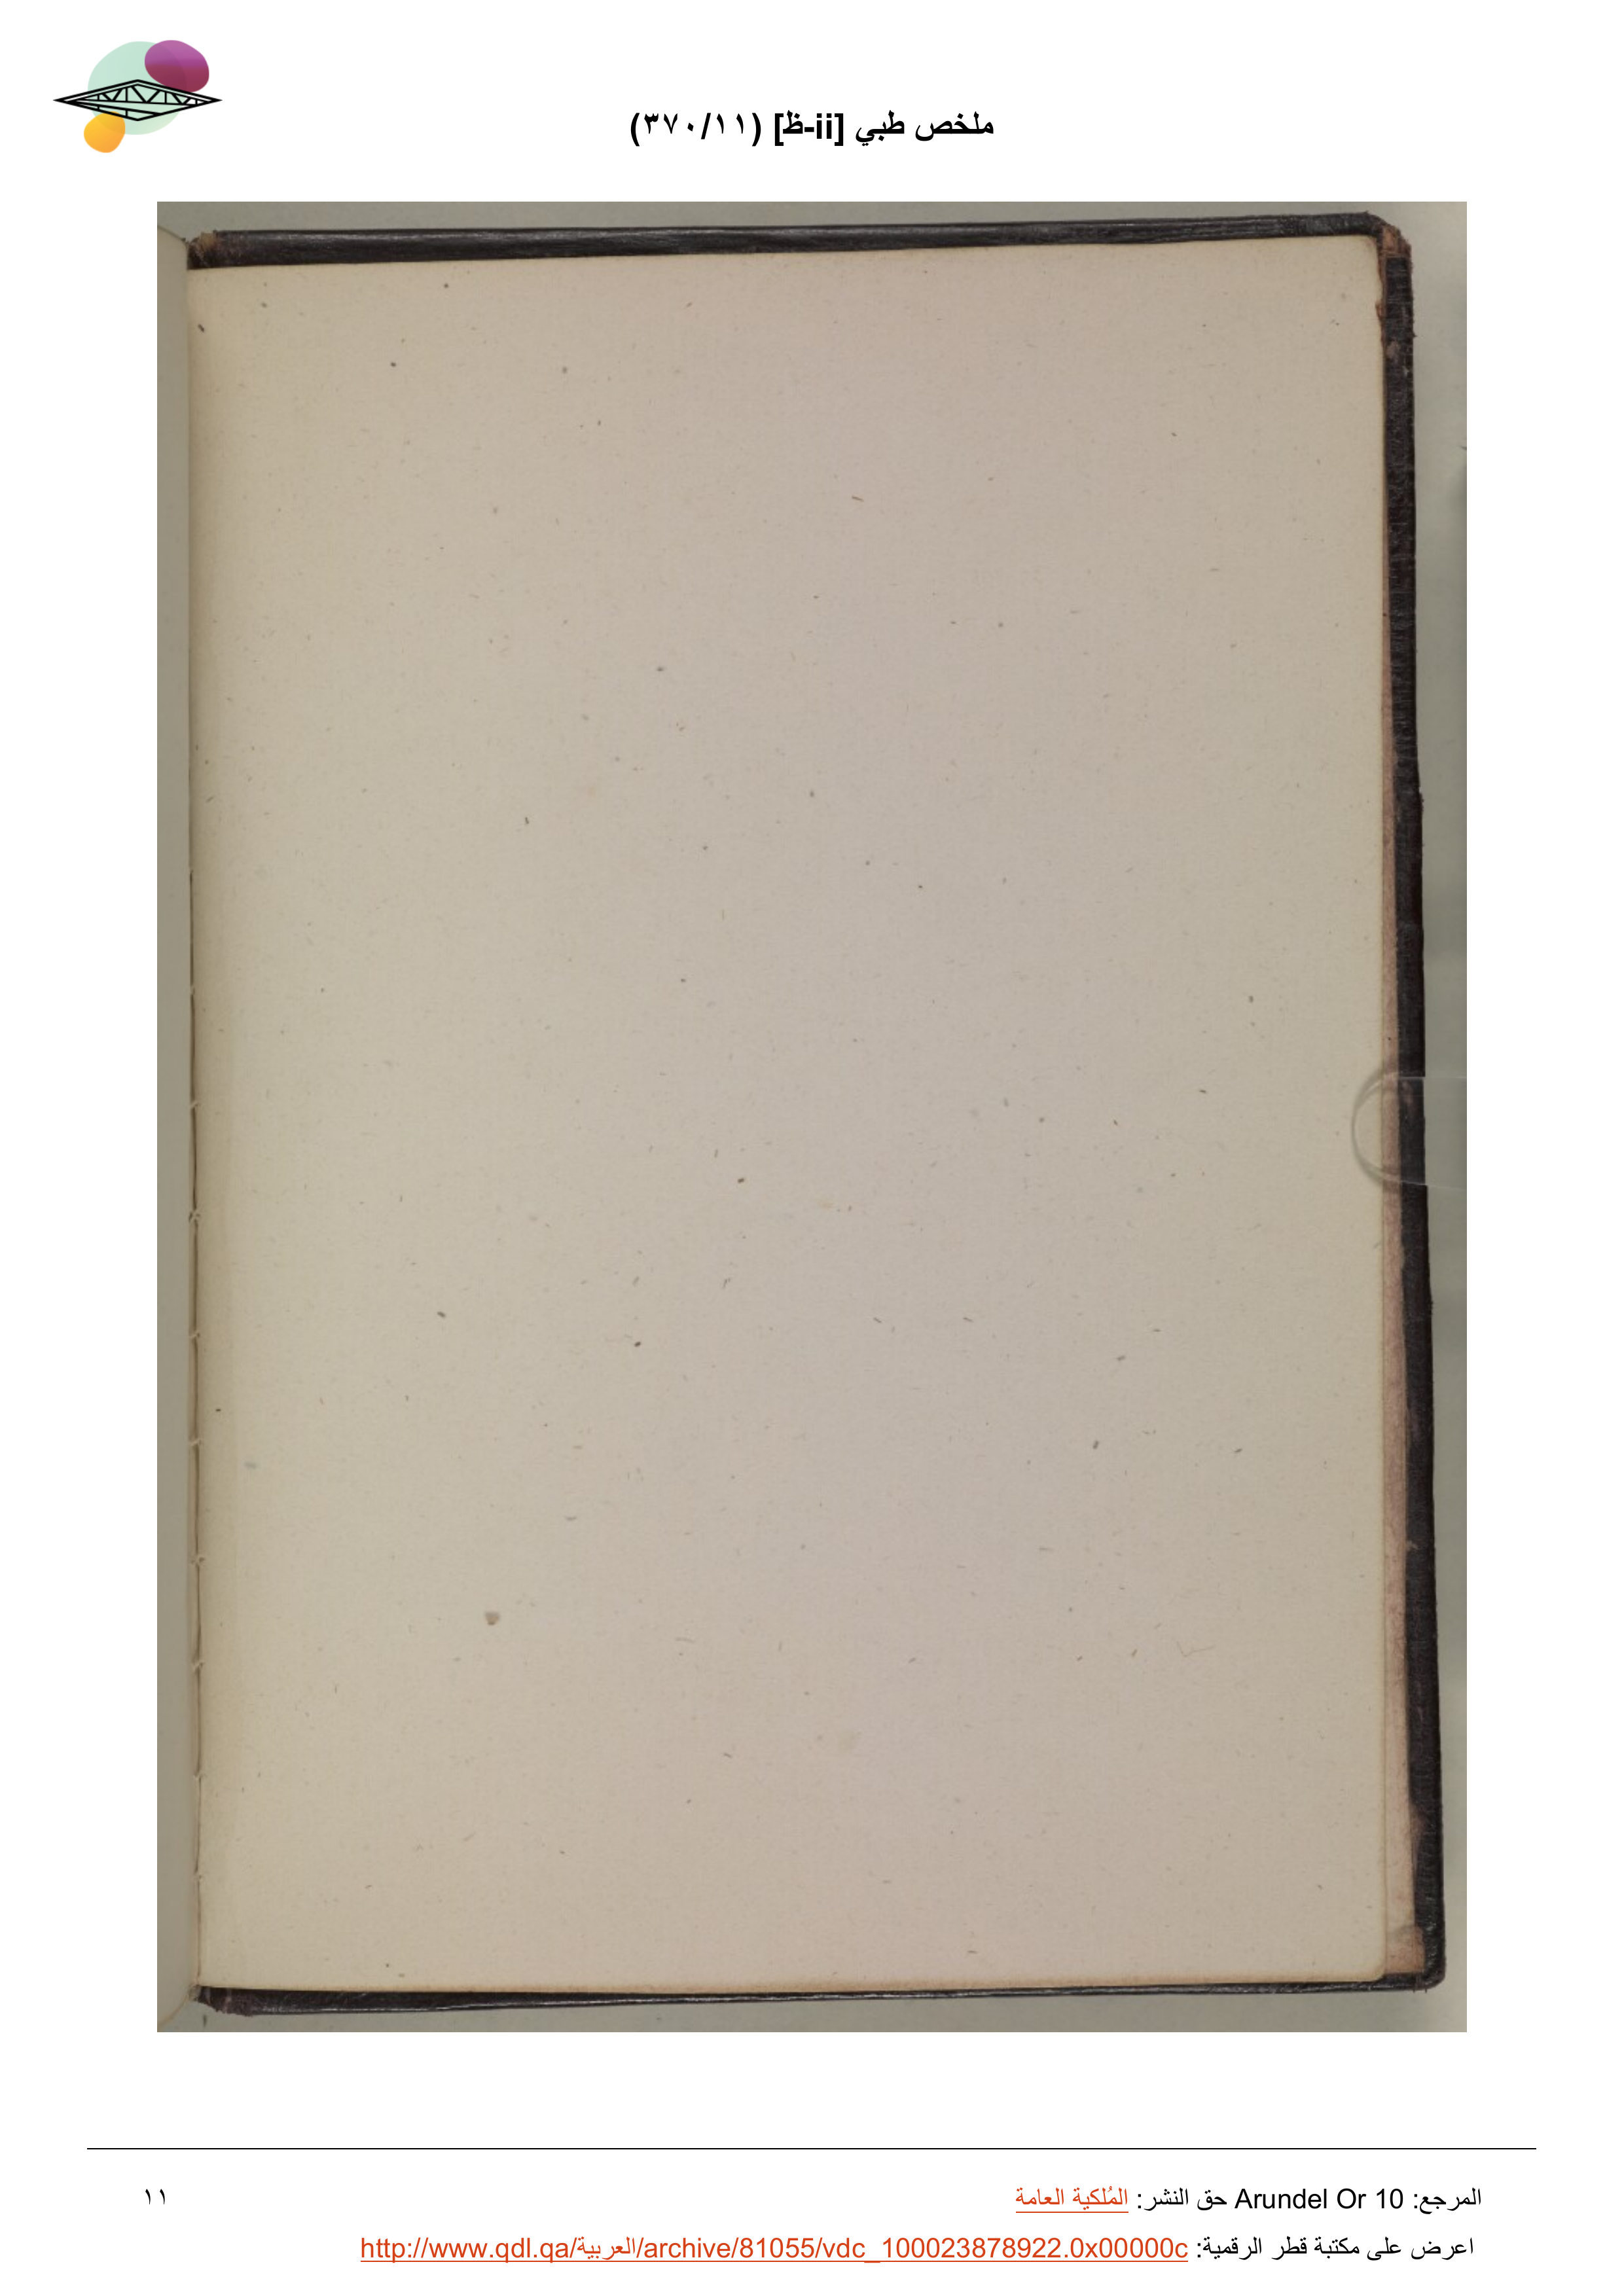 ملخص طبي [ii-ظ] (٣٧٠/١١)
المرجع: Arundel Or 10 حق النشر: المُلكية العامة
١١
اعرض على مكتبة قطر الرقمية: http://www.qdl.qa/العربية/archive/81055/vdc_100023878922.0x00000c